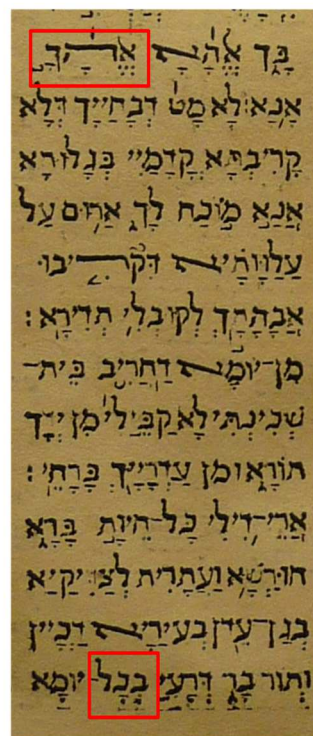 בך אלהא אלהך
אנא׃ לא מטול דבחייך דלא
קריבתא קדמיי בגלותא
אנא מוכח לך ארום על
עלוותא דקריבו
אבהתך לקובלי תדירא׃
מן־יומא דחריב בית־
שכינתי לא קבילי מן ידך
תורא ומן עדרייך ברחי׃
ארי־דילי כל־חיות ברא
חורשא ועתדית לצדיקיא
בגן־עדן בעיריא דכיין
ותור בר דרעי בכל־יומא